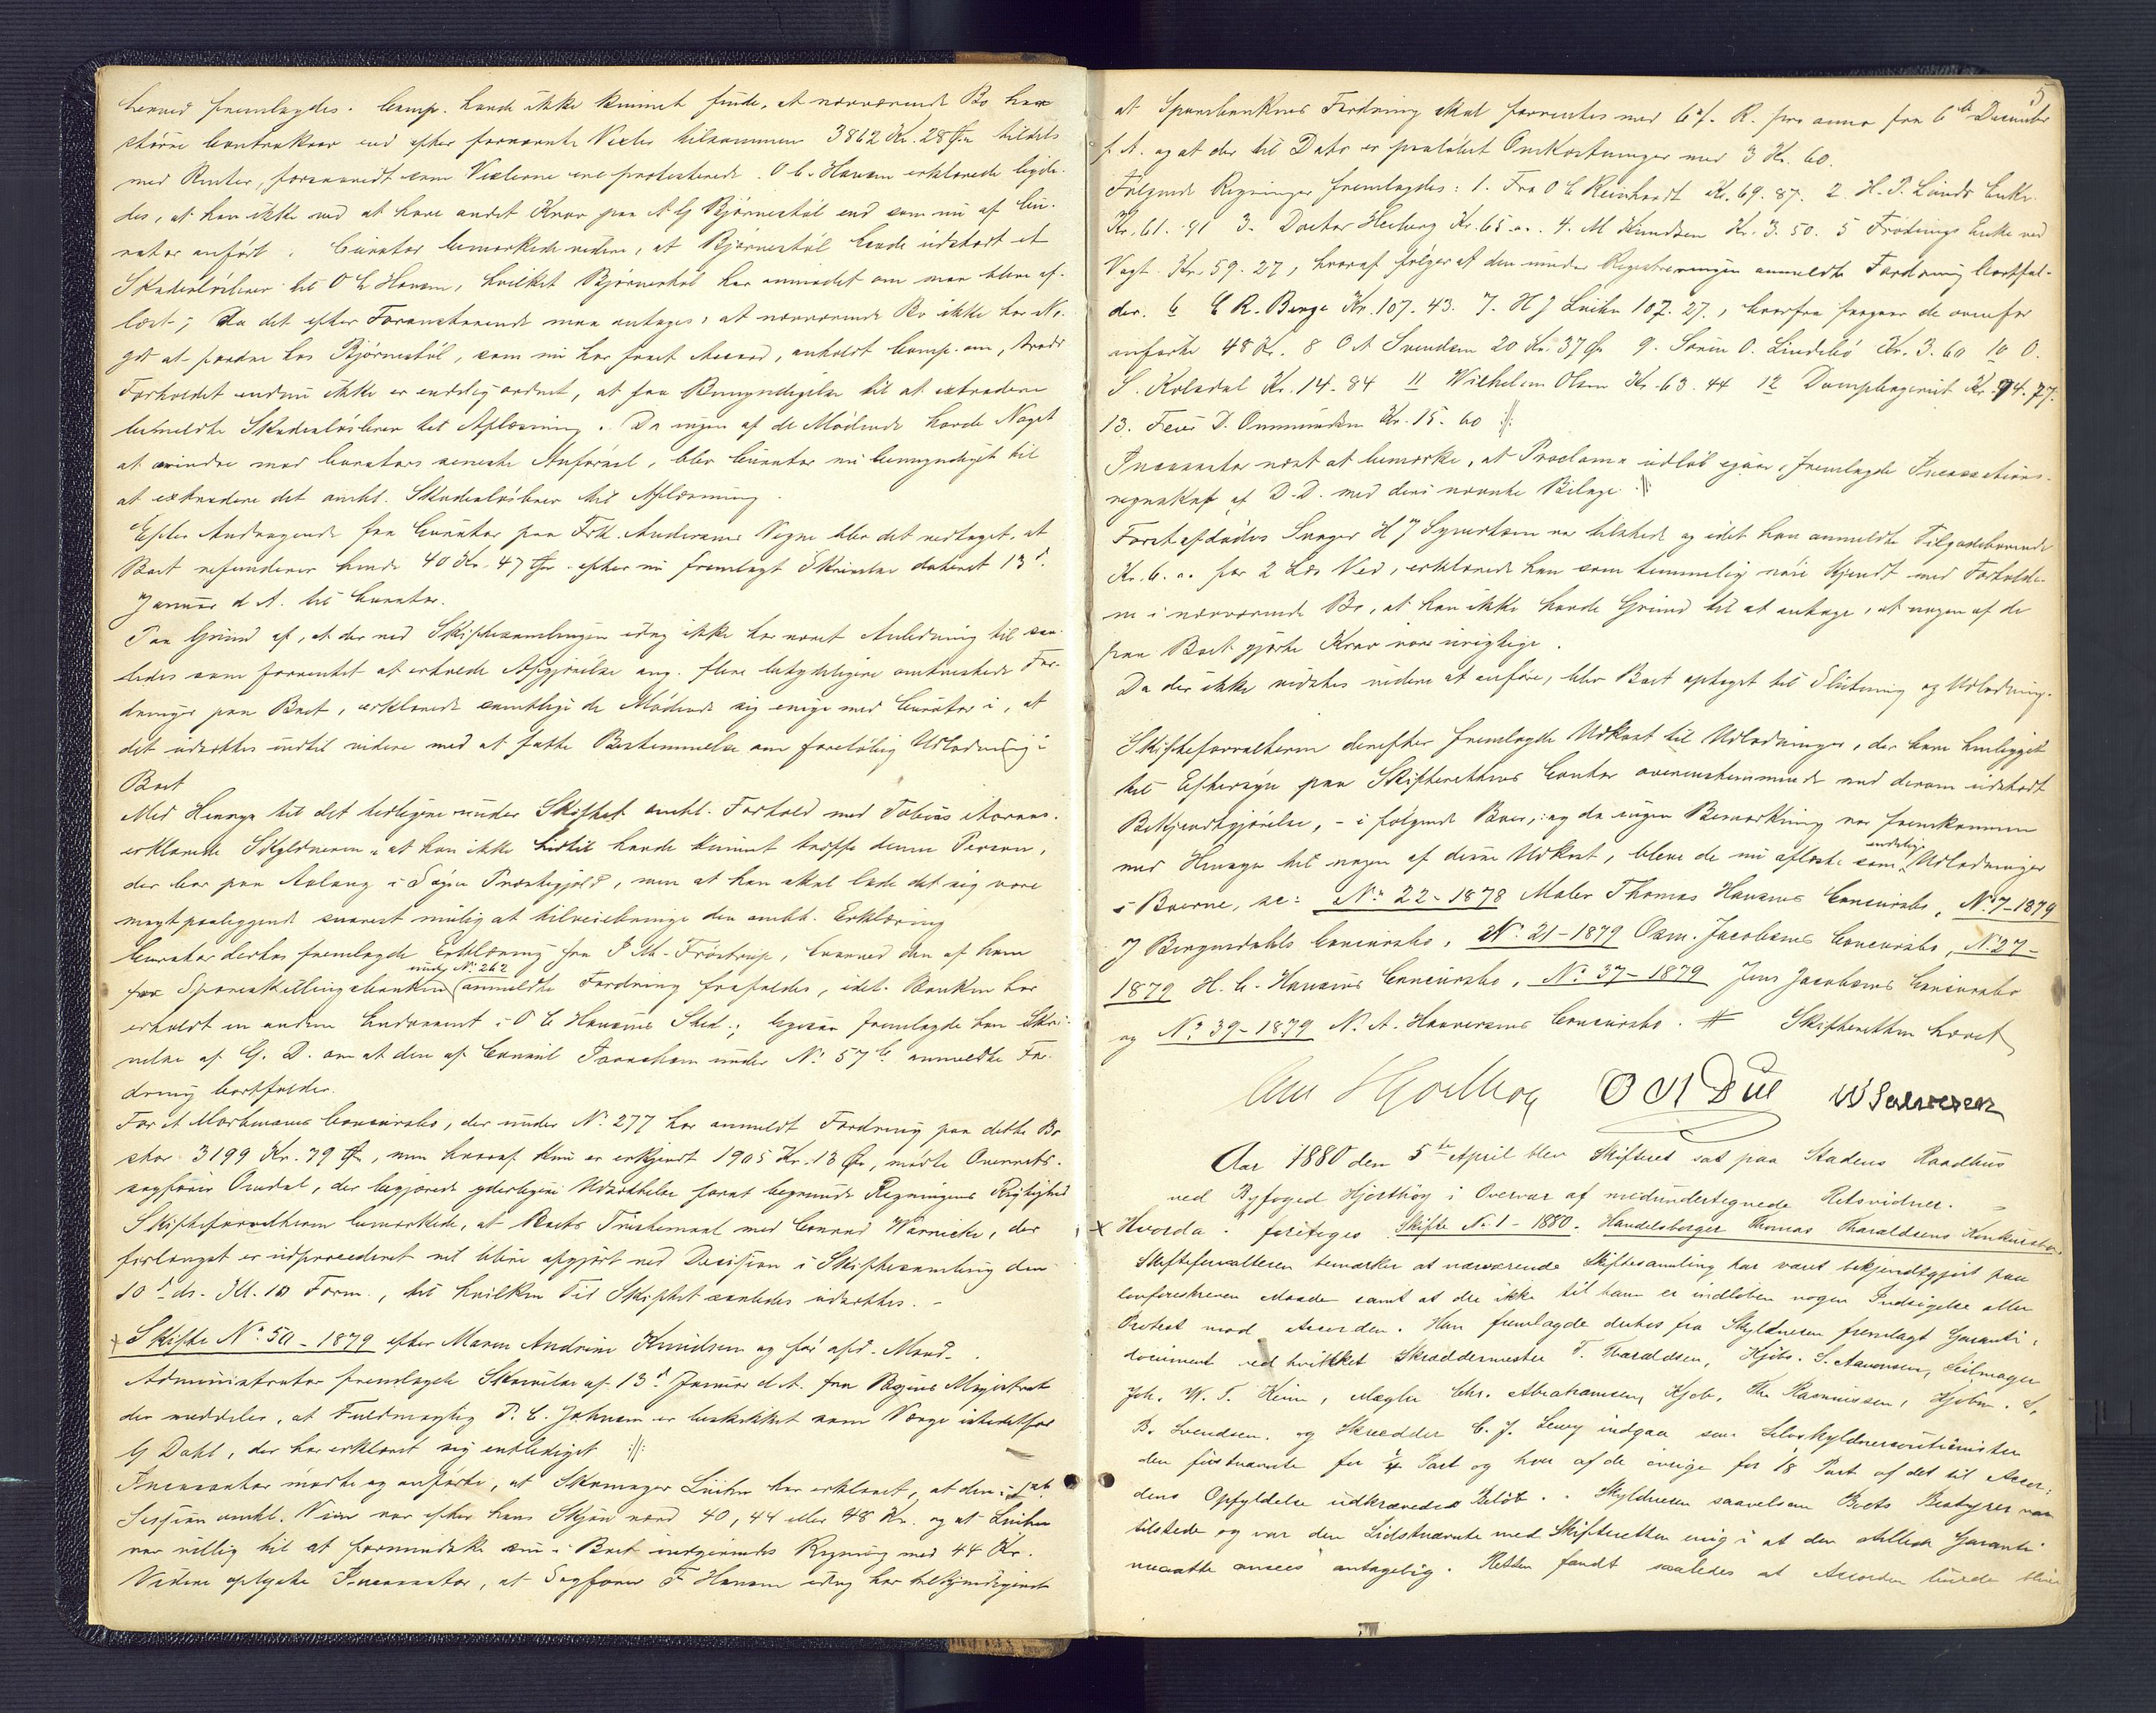 herved fremlagdes. Comp. havde ikke kunnet finde, at nærværende Bo har
større Contrakrav end efter fornævnte Vexler tilsammen 3862 Kr. 28 Øre tildels
med Renter, forsaavidt som Vexlerne ere protesterede. O C. Hansen erklærede ligele-
des, at han ikke ved at have andet Krav paa A G Bjørnestøl end som nu af Cu-
rator anført. Curator bemærkede videre, at Bjørnestøl havde udstedt et
Skadesløsbrev til O C Hansen, hvilket Bjørnestøl har anmodet om maa blive af-
læst; Da det efter Foranstaaende maa antages, at nærværende Bo ikke har No-
get at fordre hos Bjørnestøl, som nu har faaet Accord, anholdt Comp. om, trods
Forholdet endnu ikke er endelig ordnet, at faa Bemyndigelse til at extradere
bemeldte Skadesløsbrev til Aflæsning. Da ingen af de Mødende havde Noget
at erindre mod Curators seneste Anførsel, blev Curator nu bemyndiget til
at extradere det omhl. Skadesløsbrev til Aflæsning.
Efter Andragende fra Curator paa Frk. Andersens Vegne blev det vedtaget, at
Boet refunderer hende 40 Kr. 47 Øre efter nu fremlagt Skrivelse dateret 13d.
Januar d. A. til Curator.
Paa Grund af, at der ved Skiftesamlingen idag ikke har været Anledning til saa-
ledes som forventet at erhverve Afgjørelse ang. flere betydeligere omtvistede For-
dringer paa Boet, erklærede samtlige de Mødende sig enige med Curator i, at
det udsættes indtil videre med at fatte Bestemmelse om foreløbig Udlodning i
Boet
Med Hensyn til det tidligere under Skiftet omhl. Forhold med Tobias Aornes.
erklærede Skyldneren at han ikke hidtil havde kunnet træffe denne Person,
der bor paa Aalang i Søgne Præstegjeld, men at han skal lade det sig være
magtpaaliggende snarest mulig at tilveiebringe den omhl. Erklæring
Curator derhos fremlagde Erklæring fra P. M. Frøstrup, hvorved den af ham
for Spareskillingsbanken under No. 262 anmeldte Fordring frafaldes, idet Banken har
erholdt en anden Endossent i O C Hansens Sted; ligesaa fremlagde han Skri-
velse af G. D. om at den af Consul Tønnesen under No. 57 b. anmeldte For-
dring bortfalder.
For A Mortensens Concursbo, der under No. 277 har anmeldt Fordring paa dette Bo
stor 3199 Kr. 79 Øre, men hvoraf kun er erkjendt 1905 Kr. 13 Øre, mødte Overrets-
sagfører Omdal, der begjærede yderligere Udsættelse forat begrunde Regningens Rigtighed
Skifteforvalteren bemærkede, at Boets Tvistemaal med Conrad Warnicke, der
forlængst er udprocederet vil blive afgjort ved Decision i Skiftesamling den
10d ds. Kl. 10 Form., til hvilken Tid Skiftet saaledes udsattes. -
x Skifte No. 50 - 1879 efter Maren Andrine Knudsen og før afd. Mand.
Administrator fremlagde Skrivelse af 13d Januar d. A. fra Byens Magistrat
der meddeler, at Fuldmægtig P. C. Johnsen er beskikket som Værge istedetfor
G Dahl, der har erklæret sig entlediget :/:
Incassator mødte og anførte, at Skomager Luihn har erklæret, at den i sidste
Session omhl. Vare var efter hans Skjøn værd 40, 44 eller 48 Kr. og at Luihn
var villig til at formindske sin i Boet indgivende Regning med 44 Kr.
Videre oplyste Incassator, at Sagfører F Hansen idag har tilkjendegivet
5
at Sparebankens Fordring skal forrentes med 6 % R. pro anno fra 6te December
f. A. og at der til Dato er paaløbet Omkostninger med 3 Kr. 60.
Følgende Regninger fremlagdes: 1. Fra O C Reinhardt Kr. 69. 87. 2. H. P. Lunds Enke
Kr. 61. 91 3. Doctor Heiberg Kr. 65 „. 4. M Knudsen Kr. 3. 50. 5 Frødings Enke ved
Vogt Kr. 59. 27, hvoraf følger at den under Registreringen anmeldte Fordring bortfal-
der. 6 C R. Berge Kr. 107. 43. 7. H J Luihn 107. 27., hvorfra fragaar de ovenfor
anførte 48 Kr. 8 O A Svendsen 20 Kr. 37 Øre 9. Søren O. Lindebø Kr. 3. 60 10 O.
S. Kolsdal Kr. 14. 84 11 Wilhelm Olsen Kr. 63. 44 12 Dampbageriet Kr. 94. 77.
13. Feier D. Ommundsen Kr. 15. 60 :/:
Incassator næst at bemærke, at Proclama udløb igaar, fremlagde Incassations-
regnskab af D. D. med deri nævnte Bilage :/:
Først afdødes Svoger H J Syvertsen var tilstede og idet han anmeldte Tilgodehavende
Kr. 6. „ for 2 Læs Ved, erklærede han som temmelig nøie kjendt med Forholde-
ne i nærværende Bo, at han ikke havde Grund til at antage, at nogen af de
paa Boet gjorte Krav vare urigtige.
Da der ikke vidstes videre at anføre, blev Boet optaget til Slutning og Udlodning.
Skifteforvalteren derefter fremlagde Udkast til Udlodninger, der have henligget
til Eftersyn paa Skifterettens Contor overensstemmende med derom udstedt
Bekjendtgjørelse, - i følgende Boer, og da ingen Bemærkning var fremkommen
med Hensyn til nogen af disse Udkast, bleve de nu aflæste som endelig Udlodninger
i Boerne, sc: No. 22 - 1878 Maler Thomas Hansens Concursbo, No. 7 - 1879
J Bergersdahls Concursbo, No. 21 - 1879 Osm. Jacobsens Concursbo, No. 27 -
1879 H. C. Hansens Concursbo, No. 37 - 1879 Jens Jacobsens Concursbo
og No. 39 - 1879 N. A. Haaversens Concursbo. # Skifteretten hævet
Chr Hjorthøy O A Due W Salvesen
Aar 1880 den 5te April blev Skifteret sat paa Stadens Raadhus
ved Byfoged Hjorthøy i Overvær af medundertegnede Retsvidner.
x Hvorda foretoges Skifte No. 1 - 1880. Handelsborger Thomas Tharaldsens Konkursbo.
Skifteforvalteren bemærker at nærværende Skiftesamling har været bekjendtgjort paa
lovforeskreven Maade samt at der ikke til ham er indløben nogen Indsigelse eller
Protest mod Accorden. Han fremlagde derhos fra Skyldneren fremlagt Garanti-
document ved hvilket Skræddermester T. Tharaldsen, Kjøbm. S. Aanonsen, Seilmager
Joh. W. T. Heim, Mægler Chr. Abrahamsen, Kjøb. Thr Rasmussen, Kjøbm. S.
B. Svendsen. og Skrædder C. J. Lewy indgaa som Selvskyldnercautionister
den førstnævnte for ¼ Part og hver af de øvrige for 1/8 Part af det til Accor-
dens Opfyldelse udkrævede Beløb. . Skyldneren saavelsom Boets Bestyrer var
tilstede og var den Sidstnævnte med Skifteretten enig i at den stillede Garanti
maatte ansees antagelig. Retten fandt saaledes at Accorden burde blive